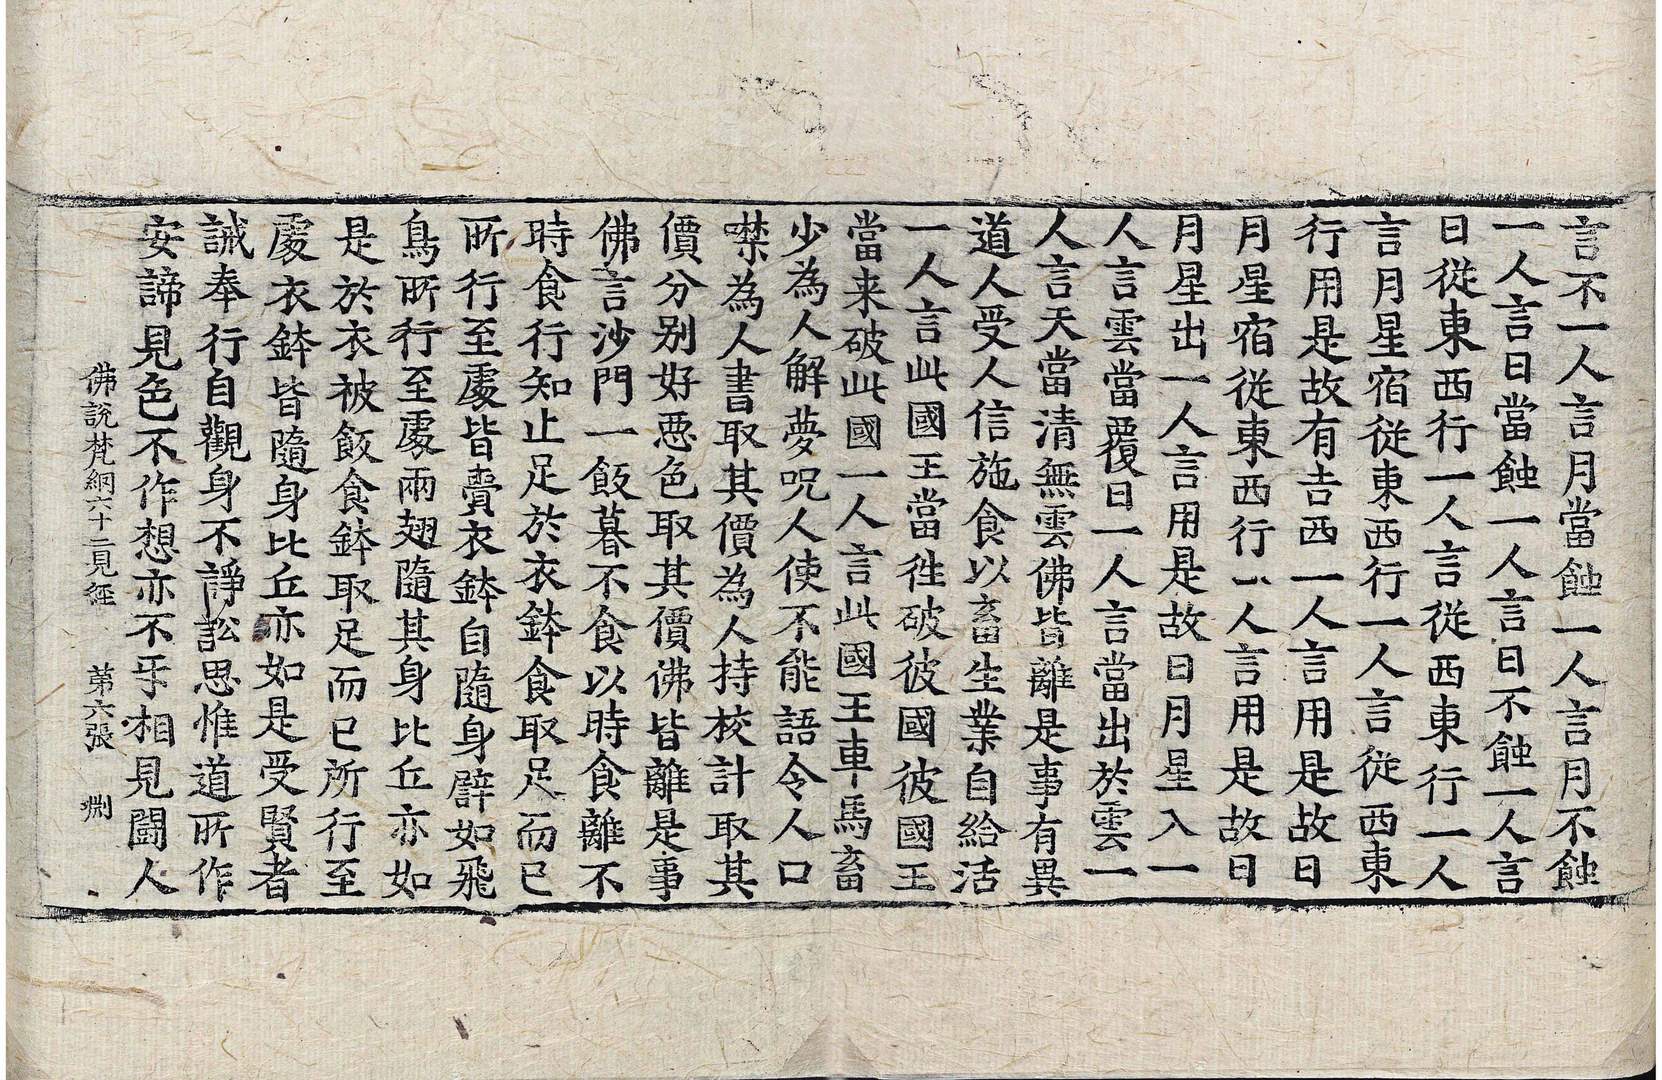 言不一人言月當蝕一人言月不蝕
一人言日當蝕一人言日不蝕一人言
日從東西行一人言從西東行一人
言月星宿從東西行一人言從西東
行用是故有吉西一人言用是故日
月星宿從東西行一人言用是故日
月星出一人言用是故日月星入一
人言雲當覆日一人言當出於雲一
人言天當清無雲佛皆離是事有異
道人受人信施食以畜生業自給活
一人言此國王當徃破彼國彼國王
當来破此國一人言此國王車馬畜
少為人解夢呪人使不能語令人口
噤為人書取其價為人持校計取其
價分别好惡色取其價佛皆離是事
佛言沙門一飯暮不食以時食離不
時食行知止足於衣鉢食取足而已
所行至處皆賫衣鉢自隨身譬如飛
鳥所行至處兩翅隨其身比丘亦如
是於衣被飯食鉢取足而已所行至
處衣鉢皆隨身比丘亦如是受賢者
誡奉行自觀身不諍訟思惟道所作
安諦見色不作想亦不乎相見鬪人
佛說梵網六十二見經 苐六張 渕